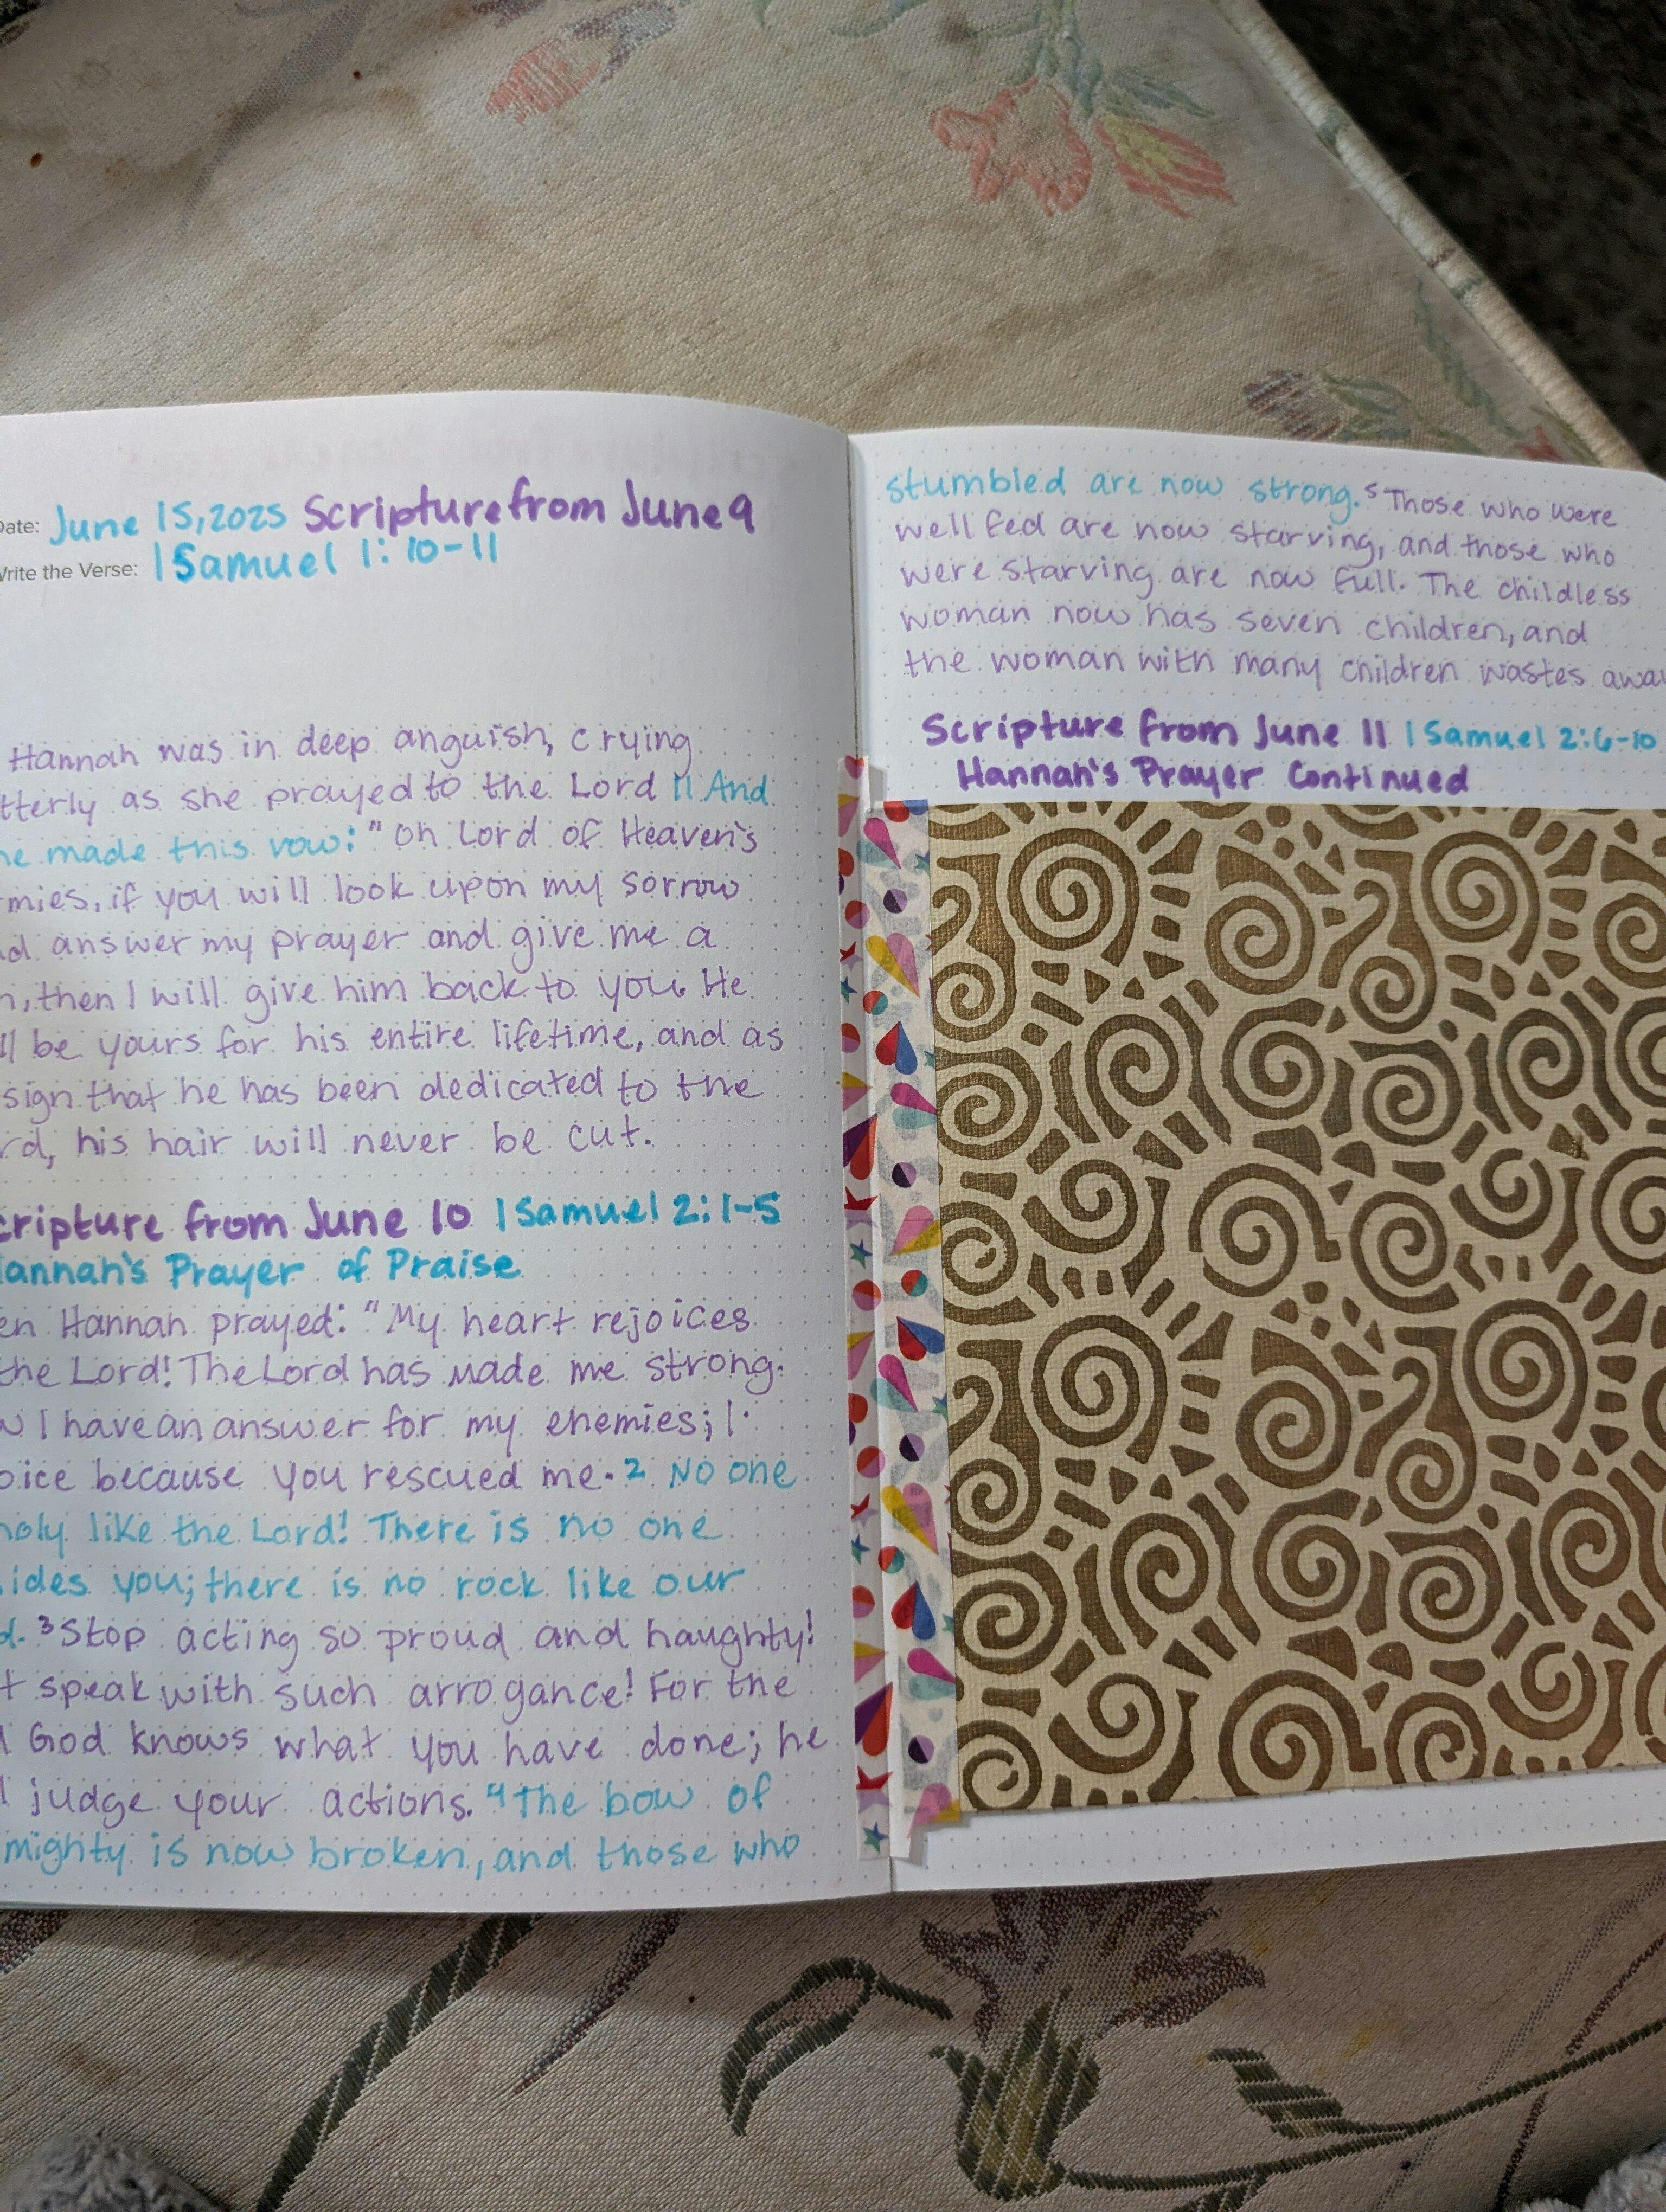 Date: June 15, 2025 Scripture from June 9
Write the Verse: 1 Samuel 1:10-11
Hannah was in deep anguish, crying
as she prayed to the Lord 11 And
made this vow: "Oh Lord of Heaven's
if you will look upon my sorrow
answer my prayer and give me a
then I will give him back to you. He
be yours for his entire lifetime, and as
sign that he has been dedicated to the
his hair will never be cut.
Scripture from June 10 1 Samuel 2:1-5
Hannah's Prayer of Praise
Hannah prayed: "My heart rejoices
the Lord! The Lord has made me strong.
I have an answer for my enemies; I
because you rescued me. 2 No one
holy like the Lord! There is no one
you; there is no rock like our
3 Stop acting so proud and haughty!
speak with such arrogance! For the
God knows what you have done; he
judge your actions. 4 The bow of
mighty is now broken, and those who
stumbled are now strong. 5 Those who were
well fed are now starving, and those who
were starving are now full. The childless
woman now has seven children, and
the woman with many children wastes
Scripture from June 11 1 Samuel 2:6-10
Hannah's Prayer Continued